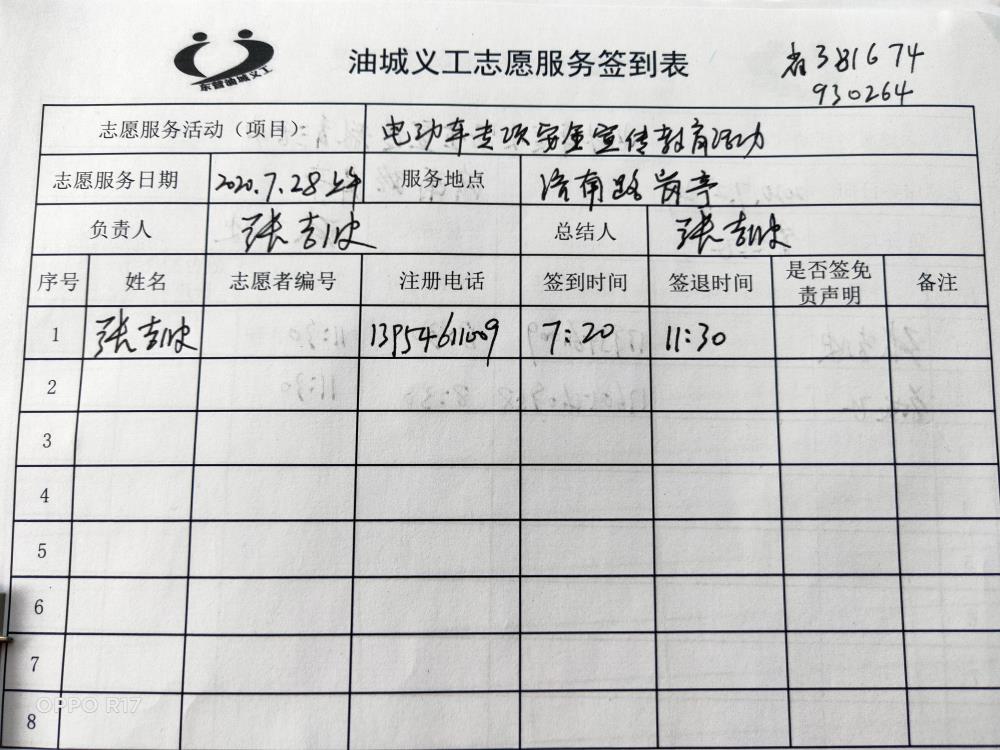 东营油城义工
油城义工志愿服务签到表
省381674
930264
志愿服务活动（项目）： 电动车专项安全宣传教育活动
志愿服务日期 2020.7.28上午 服务地点 济南路岗亭
负责人 张吉波 总结人 张吉波
序号 姓名 志愿者编号 注册电话 签到时间 签退时间 是否签免责声明 备注
1 张吉波 13954611009 7:20 11:30
2
3
4
5
6
7
8
OPPO R17